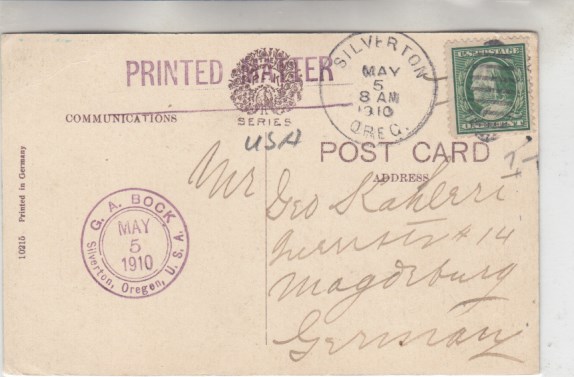 PRINTED MATTER
SERIES
USA
SILVERTON
MAY
5
8 AM
1910
OREG.
U.S. POSTAGE
ONE CENT
COMMUNICATIONS
POST CARD
ADDRESS
10215 Printed in Germany
G. A. BOCK
MAY
5
1910
Silverton, Oregon, U.S.A.
Mr Geo Kahlert
14
Magdeburg
Germany